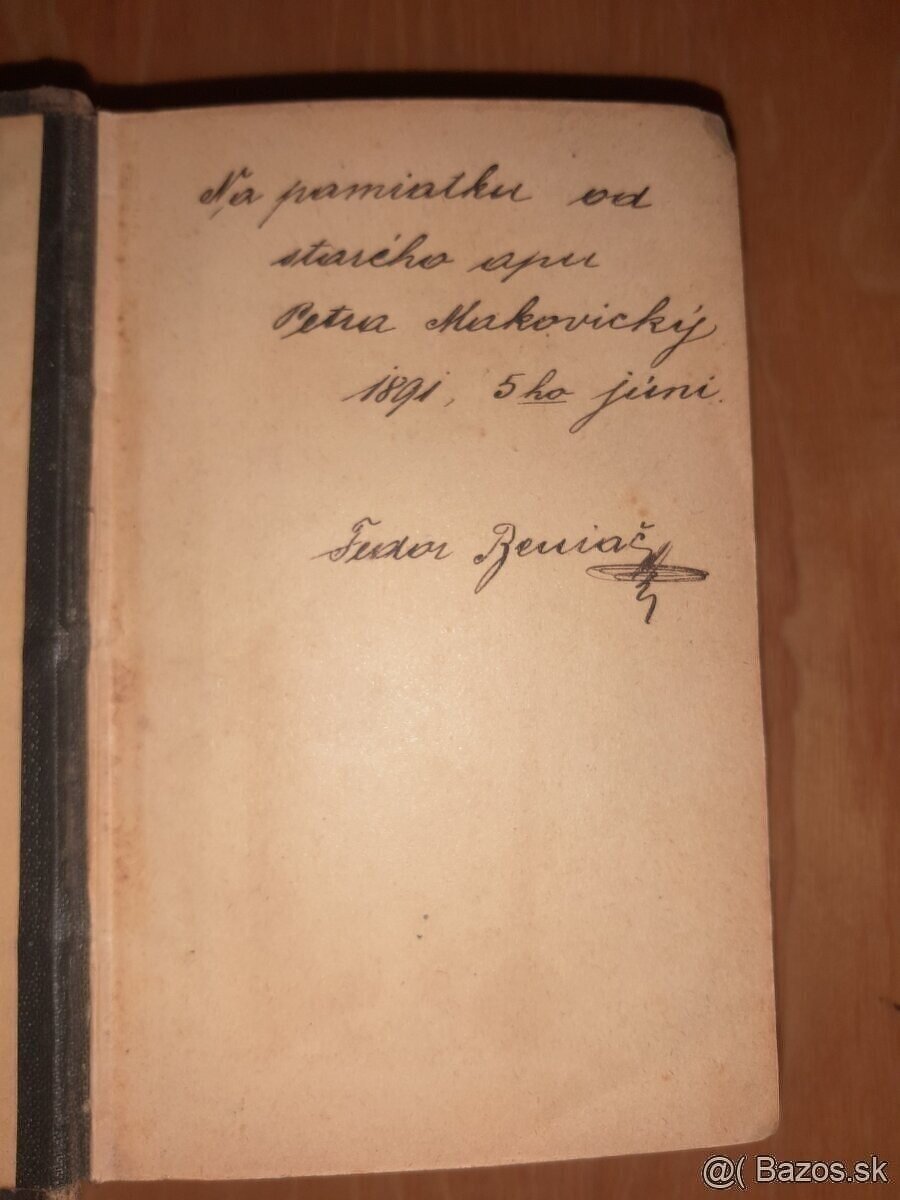 Na pamiatku od
starého apu
Petra Makovický
1891, 5ho júni.
Fedor Beniač
@( Bazos.sk